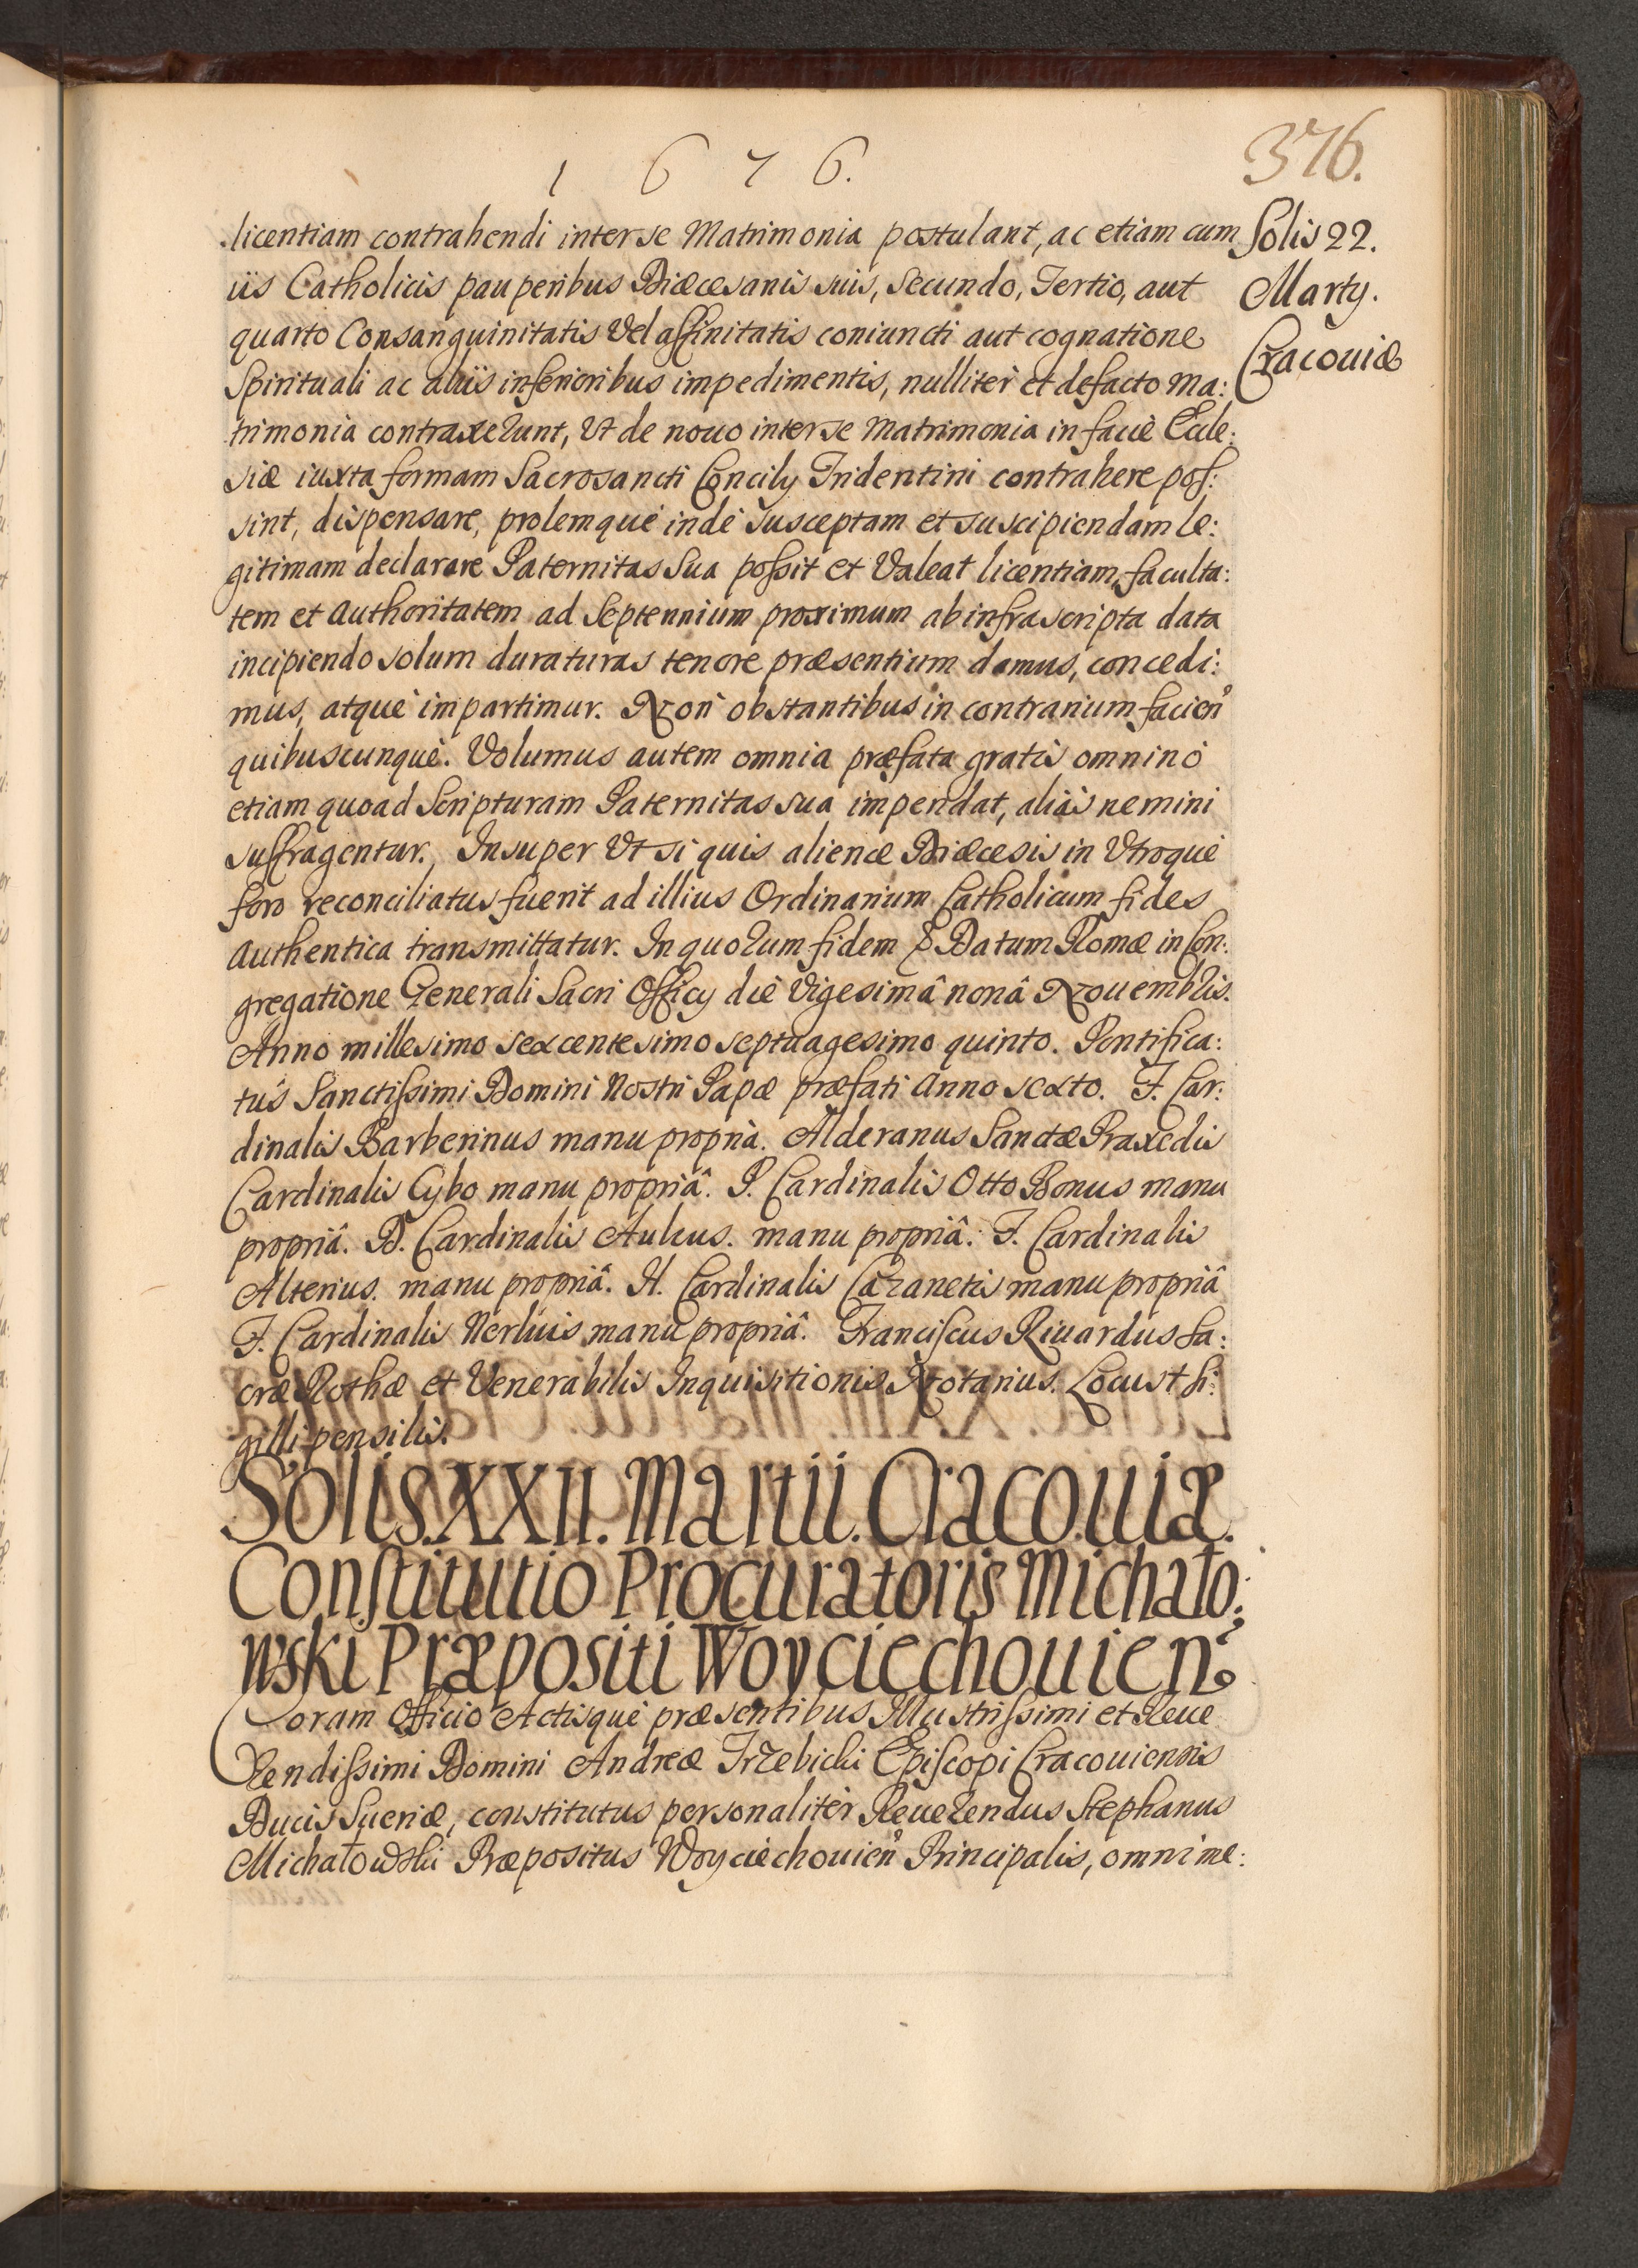 1 6 7 6.
376.
licentiam contrahendi inter se Matrimonia postulant, ac etiam cum
iis Catholicis pauperibus Diæcesanis suis, Secundo, Tertio, aut
quarto Consanguinitatis Vel affinitatis coniuncti aut cognatione
Spirituali ac aliis inferioribus impedimentis, nulliter et defacto Ma:
trimonia contraxerunt, Vt de nouo inter se Matrimonia in facie Eccle:
siæ iuxta formam Sacrosancti Concilij Tridentini contrahere pos:
sint, dispensare, prolemque inde susceptam et suscipiendam le:
gitimam declarare Paternitas Sua possit et Valeat licentiam, faculta:
tem et Authoritatem ad Septennium proximum ab infrascripta data
incipiendo solum duraturas tenore præsentium damus, concedi:
mus, atque impartimur. Non obstantibus in contrarium facien
quibuscunque. Volumus autem omnia præfata gratis omnino
etiam quoad Scripturam Paternitas sua impendat, alias nemini
suffragentur. Insuper Vt si quis alienæ Diæcesis in Vtroque
foro reconciliatus fuerit ad illius Ordinarium Catholicum fides
Authentica transmittatur. In quorum fidem & Datum Romæ in Con:
gregatione Generali Sacri Officij die Vigesimâ nonâ Nouembris.
Anno millesimo sexcentesimo septuagesimo quinto. Pontifica:
tus Sanctissimi Domini Nostri Papæ præfati Anno sexto. F. Car:
dinalis Barberinus manu propria. Alderanus Sanctæ Praxedis
Cardinalis Cybo manu propriâ. P. Cardinalis Otto Bonus manu
propriâ. D. Cardinalis Auleus. manu propriâ. F. Cardinalis
Alterius. manu propriâ. H. Cardinalis Cazanetis manu propriâ
F. Cardinalis Nerluis manu propriâ. Franciscus Riuardus Sa:
cræ Rothæ et Venerabilis Inquisitionis Notarius. Locus † Si:
gilli pensilis.
Solis. XXII. Martii. Cracouiæ.
Constitutio Procuratoris Michało:
wski Præpositi Woyciechouien
Coram Officio Actisque præsentibus Illustrissimi et Reue
Rendissimi Domini Andreæ Trzebicki Episcopi Cracouiensis
Ducis Sueriæ, constitutus personaliter Reuerendus Stephanus
Michałowski Præpositus Woyciechouien Principalis, omni me:
Solis 22.
Martij.
Cracouiæ